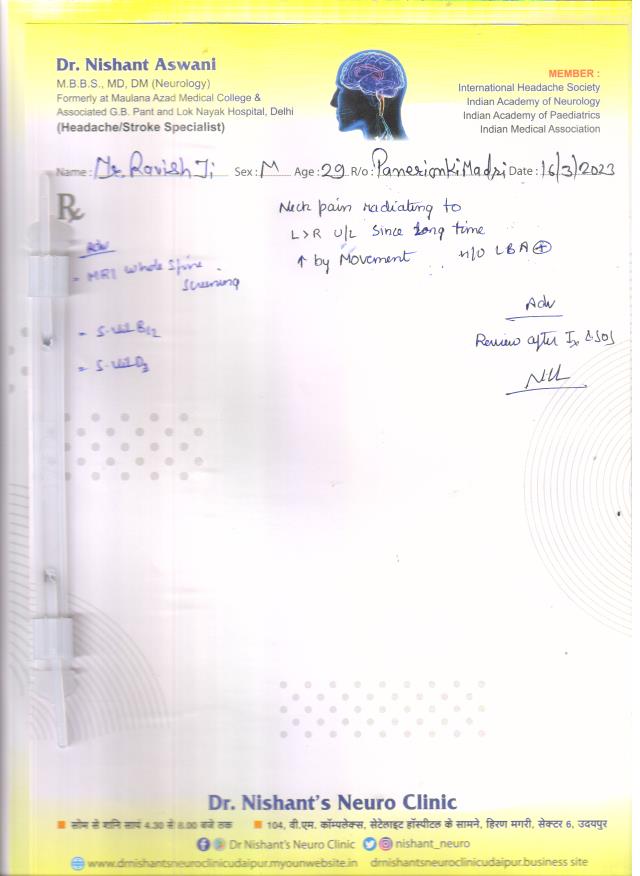 Dr. Nishant Aswani
M.B.B.S., MD, DM (Neurology)
Formerly at Maulana Azad Medical College &
Associated G.B. Pant and Lok Nayak Hospital, Delhi
(Headache/Stroke Specialist)
MEMBER :
International Headache Society
Indian Academy of Neurology
Indian Academy of Paediatrics
Indian Medical Association
Name: Mr. Ravish Ji Sex: M Age: 29 R/o: Panerion Ki Madri Date: 16/3/2023
Rx
Neck pain radiating to
L>R U/L since long time
↑ by Movement H/O LBA ⊕
Adv
- MRI whole spine
screening
- S. Vit B12
- S. Vit D3
Adv
Review after Ix & SOS
Dr. Nishant's Neuro Clinic
सोम से शनि सायं 4.30 से 8.00 बजे तक 104, वी.एम. कॉम्पलेक्स, सेटेलाइट हॉस्पीटल के सामने, हिरण मगरी, सेक्टर 6, उदयपुर
Dr Nishant's Neuro Clinic nishant_neuro
www.drnishantsneuroclinicudaipur.myounwebsite.in drnishantsneuroclinicudaipur.business site